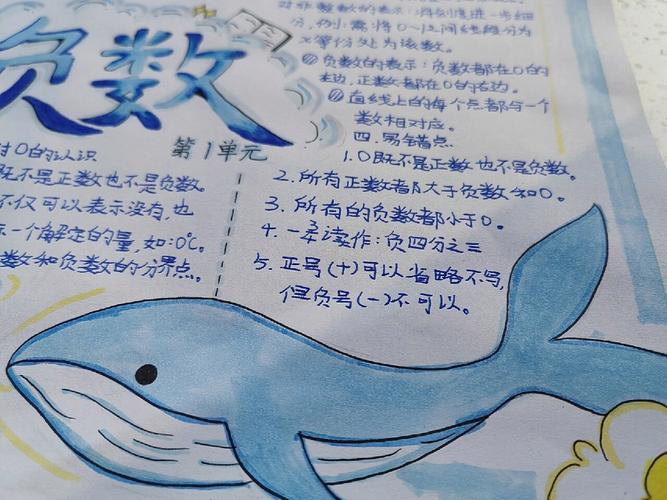 负数
第1单元
对0的认识
既不是正数也不是负数。
不仅可以表示没有,也
一个解定的量,如:0℃。
数和负数的分界点。
对非整数的表示:进一步细
分,例小需将0~1之间线段分为
等份处为该数。
②负数的表示:负数都在0的
左边,正数都在0的右边。
③直线上的每个点都与一个
数相对应。
四.易错点
1.0既不是正数也不是负数。
2.所有正数者都大于负数和0。
3.所有的负数者都小于0。
4.-3/4读作:负四分之三
5.正号(+)可以省略不写,
但负号(-)不可以。